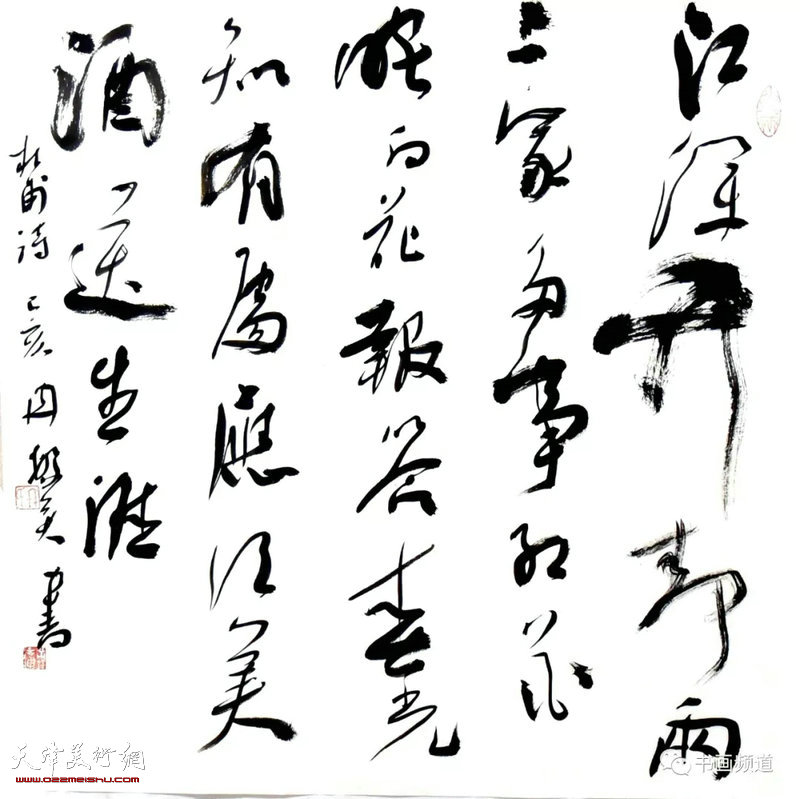 江深竹静兩
三家多事红花
映白花報答春光
知有處應須美
酒送生涯
杜甫詩 己亥 書
天津美術網
www.022meishu.com
书画频道